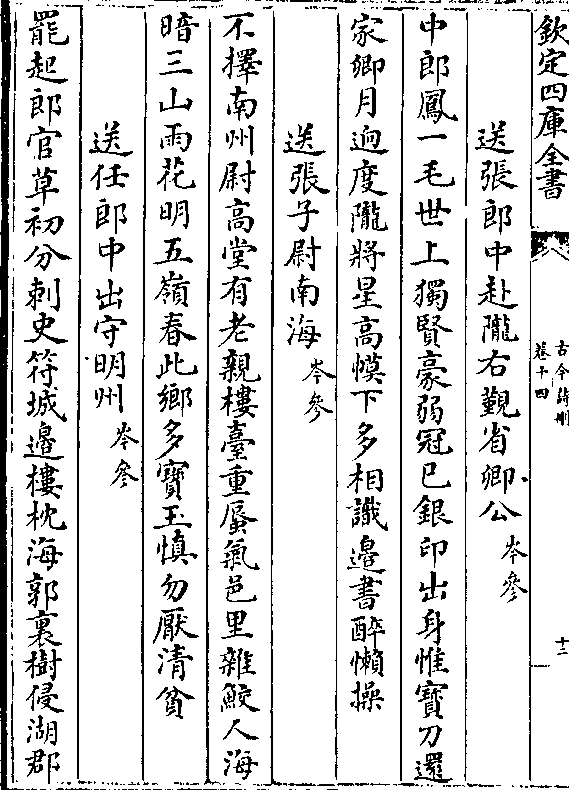 欽定四庫全書
古今詩刪
卷十四
十二
送張郎中赴隴右覲省卿公 岑參
中郎鳳一毛世上獨賢豪弱冠已銀印出身惟寶刀還
家卿月迥度隴將星高幙下多相識邊書醉懶操
送張子尉南海 岑參
不擇南州尉高堂有老親樓臺重蜃氣邑里雜鮫人海
暗三山雨花明五嶺春此鄉多寶玉慎勿厭清貧
送任郎中出守明州 岑參
罷起郎官草初分刺史符城邊樓枕海郭裏樹侵湖郡